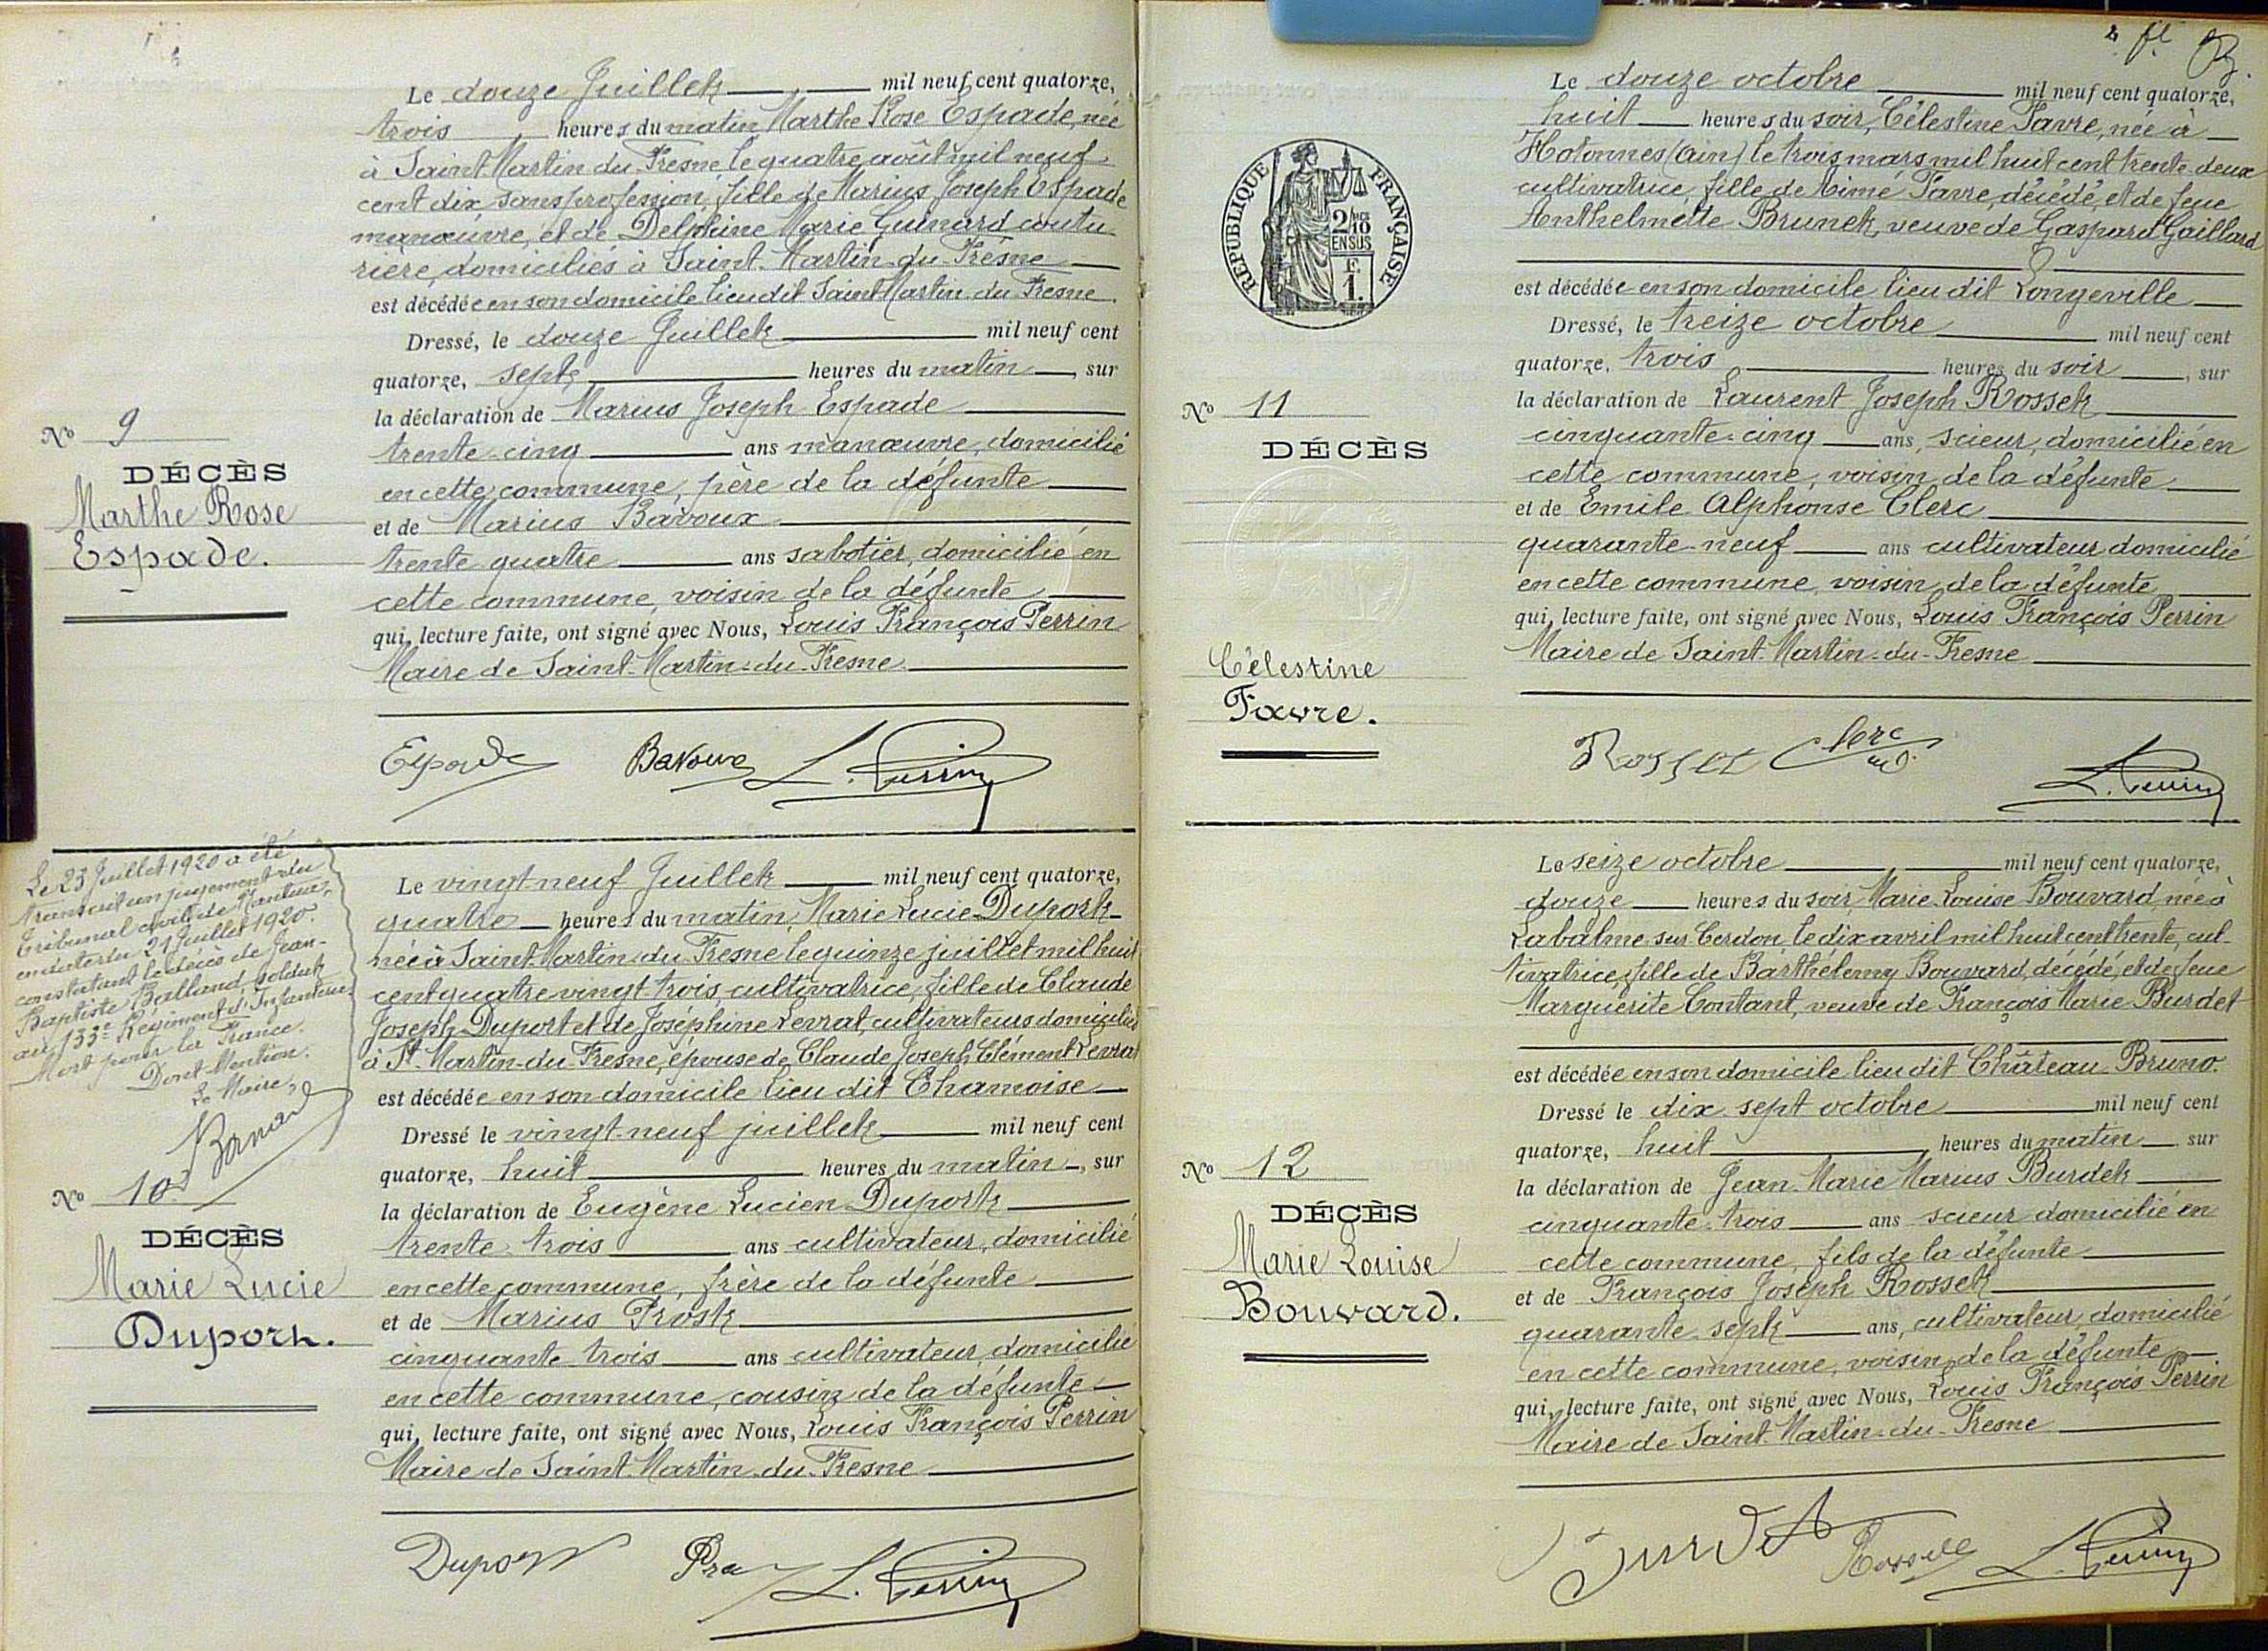 Le douze Juillet mil neuf cent quatorze,
trois heures du matin, Marthe Rose Espade, née
à Saint Martin du Fresne, le quatre août mil neuf
cent dix sans profession, fille de Marius Joseph Espade
manœuvre, et de Delphine Marie Guinard coutu
rière, domiciliés à Saint-Martin-du-Fresne
est décédée en son domicile lieu dit Saint Martin du Fresne.
Dressé, le douze Juillet mil neuf cent
quatorze, sept heures du matin, sur
la déclaration de Marius Joseph Espade
trente-cinq ans manœuvre, domicilié
en cette commune, père de la défunte
et de Marius Bavoux
trente quatre ans sabotier, domicilié en
cette commune, voisin de la défunte
qui, lecture faite, ont signé avec Nous, Louis François Perrin
Maire de Saint-Martin-du-Fresne
No 9
DÉCÈS
Marthe Rose
Espade.
Espade Bavoux L. Perrin
Le 23 Juillet 1920 a été
transcrit un jugement du
Tribunal civil de Nantua,
en date du 21 Juillet 1920.
constatant le décès de Jean-
Baptiste Balland, soldat
au 133e Régiment d'Infanterie
Mort pour la France.
Dont Mention.
Le Maire,
Le vingt neuf Juillet mil neuf cent quatorze,
quatre heures du matin, Marie Lucie Duport
née à Saint Martin du Fresne le quinze juillet mil huit
cent quatre vingt-trois, cultivatrice, fille de Claude
Joseph Duport et de Joséphine Levrat, cultivateurs domiciliés
à St Martin-du-Fresne, épouse de Claude Joseph Clément Levrat
est décédée en son domicile lieu dit Chamoise
Dressé le vingt-neuf juillet mil neuf cent
quatorze, huit heures du matin, sur
la déclaration de Eugène Lucien Duport
trente-trois ans cultivateur, domicilié
en cette commune, frère de la défunte
et de Marius Prost
cinquante trois ans cultivateur, domicilié
en cette commune, cousin de la défunte
qui, lecture faite, ont signé avec Nous, Louis François Perrin
Maire de Saint-Martin-du-Fresne
No 10
DÉCÈS
Marie Lucie
Duport.
Duport L. Perrin
RÉPUBLIQUE FRANÇAISE
2/10
EN SUS
F.
1
Le douze octobre mil neuf cent quatorze,
huit heures du soir, Célestine Favre, née à
Hotonnes (Ain) le trois mars mil huit cent trente-deux
cultivatrice, fille de Aimé Favre, décédé, et de feue
Anthelmette Brunet, veuve de Gaspard Gaillard
est décédée en son domicile lieu dit Longeville
Dressé, le treize octobre mil neuf cent
quatorze, trois heures du soir, sur
la déclaration de Laurent Joseph Rosset
cinquante-cinq ans, scieur, domicilié en
cette commune, voisin de la défunte
et de Emile Alphonse Clerc
quarante-neuf ans cultivateur domicilié
en cette commune, voisin de la défunte
qui, lecture faite, ont signé avec Nous, Louis François Perrin
Maire de Saint-Martin-du-Fresne
No 11
DÉCÈS
Célestine
Favre.
Rosset Clerc L. Perrin
Le seize octobre mil neuf cent quatorze,
douze heures du soir, Marie-Louise Bouvard, née à
Labalme-sur-Cerdon, le dix avril mil huit cent trente, cul-
tivatrice, fille de Barthélemy Bouvard, décédé, et de feue
Marguerite Contant, veuve de François Marie Burdet
est décédée en son domicile lieu dit Château-Bruno.
Dressé le dix-sept octobre mil neuf cent
quatorze, huit heures du matin, sur
la déclaration de Jean-Marie Marius Burdet
cinquante-trois ans scieur domicilié en
cette commune, fils de la défunte
et de François Joseph Rosset
quarante-sept ans, cultivateur, domicilié
en cette commune, voisin de la défunte
qui, lecture faite, ont signé avec Nous, Louis François Perrin
Maire de Saint-Martin-du-Fresne
No 12
DÉCÈS
Marie Louise
Bouvard.
Burdet Rosset L. Perrin